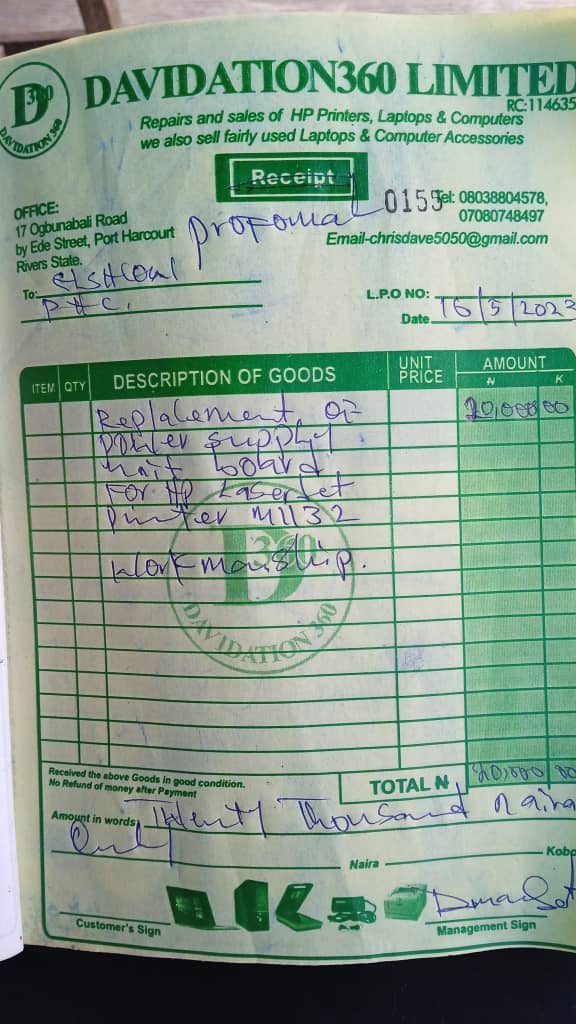 D360
DAVIDATION 360
DAVIDATION360 LIMITED
RC:114635
Repairs and sales of HP Printers, Laptops & Computers
we also sell fairly used Laptops & Computer Accessories
Receipt
0155
OFFICE:
17 Ogbunabali Road
by Ede Street, Port Harcourt
Rivers State.
Tel: 08038804578,
07080748497
Email-chrisdave5050@gmail.com
To:
PHC.
L.P.O NO:
Date 16/5/2022
ITEM QTY DESCRIPTION OF GOODS UNIT PRICE AMOUNT
N K
Replacement of 20,000 00
power supply
unit board
For HP LaserJet
printer M1132
Workmanship.
D360
DAVIDATION 360
Received the above Goods in good condition.
No Refund of money after Payment
TOTAL N 20,000 00
Amount in words Twenty Thousand naira
Only
Naira Kobo
Customer's Sign
Management Sign